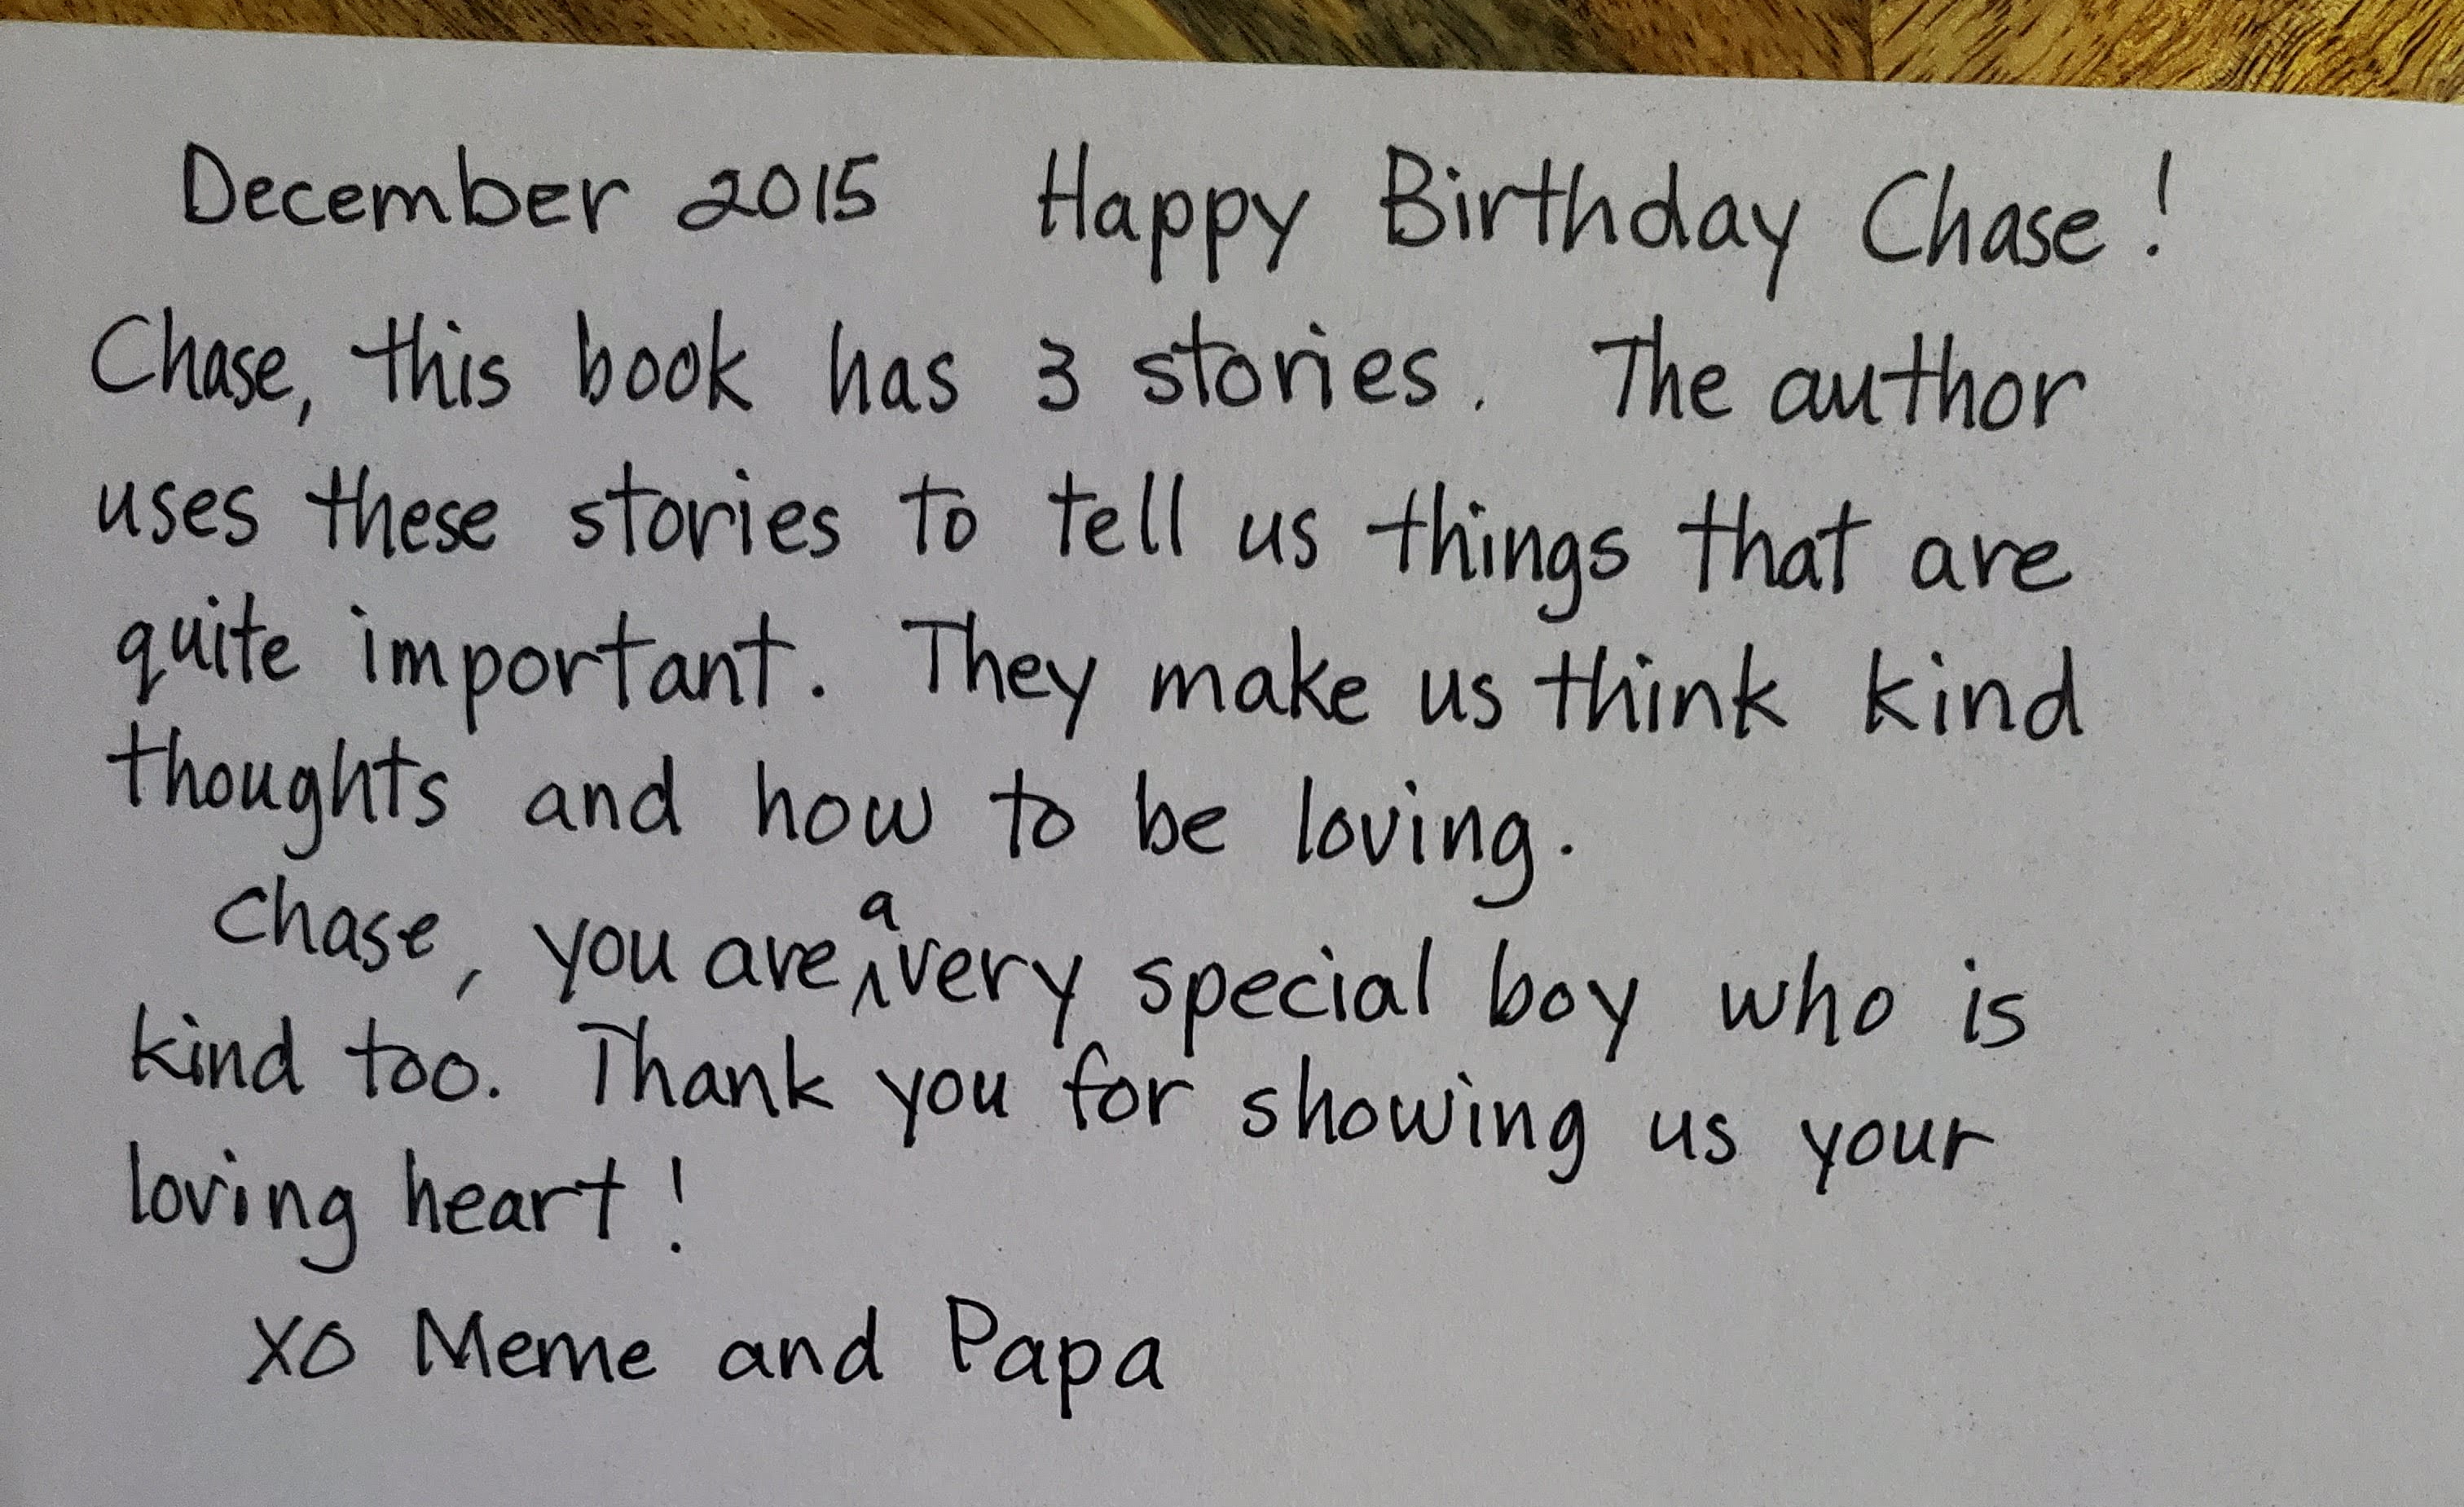 December 2015 Happy Birthday Chase!
Chase, this book has 3 stories. The author
uses these stories to tell us things that are
quite important. They make us think kind
thoughts and how to be loving.
Chase, you are a very special boy who is
kind too. Thank you for showing us your
loving heart!
XO Meme and Papa